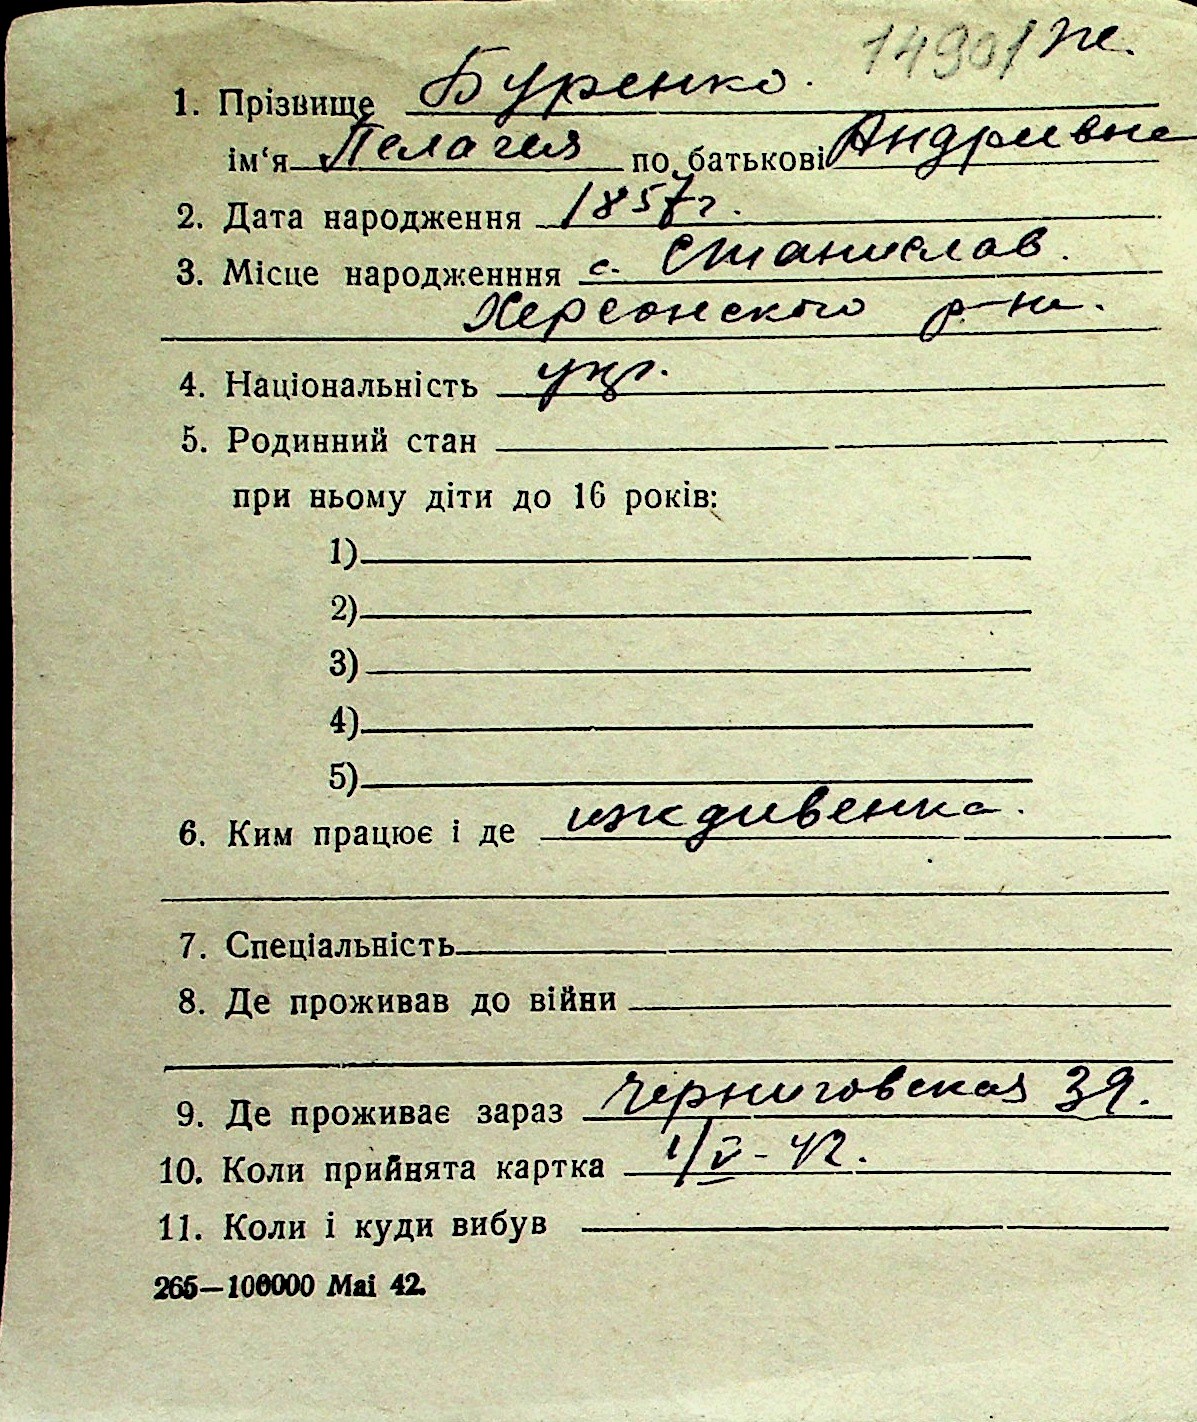 1490/ж.
1. Прізвище Буренко.
ім‘я Пелагея по батькові Андриевна
2. Дата народження 1857г.
3. Місце народженння с. Станислав.
Херсонского р-на.
4. Національність укр.
5. Родинний стан
при ньому діти до 16 років:
1)
2)
3)
4)
5)
6. Ким працює і де иждивенка.
7. Спеціальність
8. Де проживав до війни
9. Де проживає зараз Черниговская 39.
10. Коли прийнята картка 1/V-42.
11. Коли і куди вибув
265—100000 Mai 42.